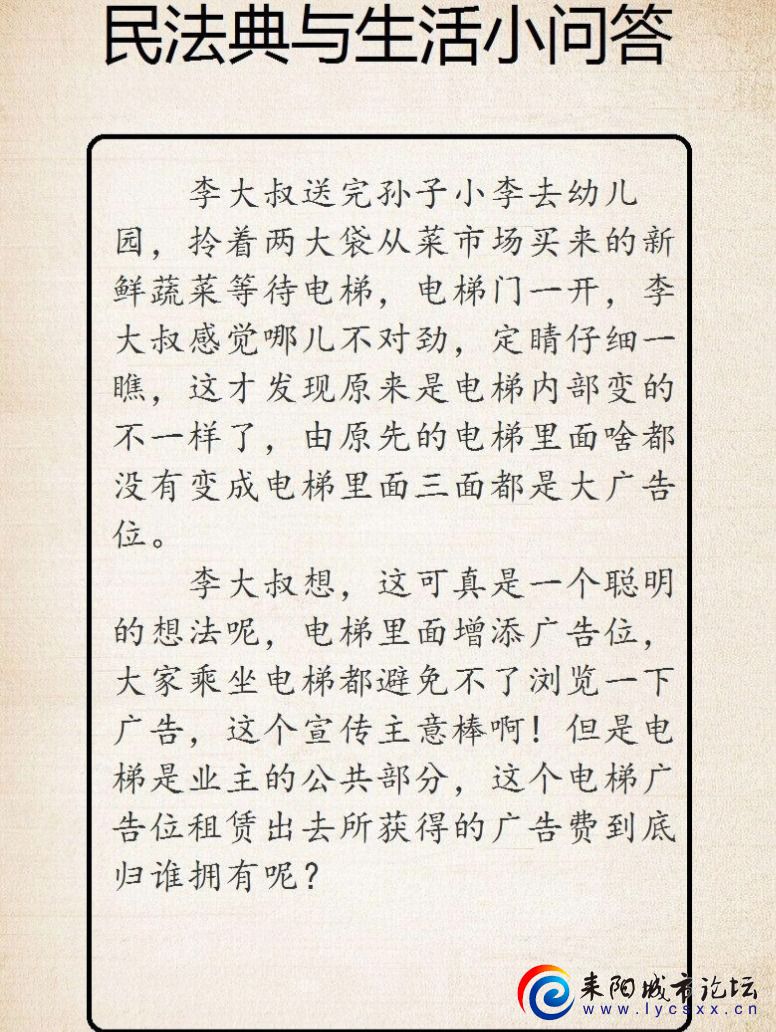 民法典与生活小问答
李大叔送完孙子小李去幼儿
园，拎着两大袋从菜市场买来的新
鲜蔬菜等待电梯，电梯门一开，李
大叔感觉哪儿不对劲，定睛仔细一
瞧，这才发现原来是电梯内部变的
不一样了，由原先的电梯里面啥都
没有变成电梯里面三面都是大广告
位。
李大叔想，这可真是一个聪明
的想法呢，电梯里面增添广告位，
大家乘坐电梯都避免不了浏览一下
广告，这个宣传主意棒啊！但是电
梯是业主的公共部分，这个电梯广
告位租赁出去所获得的广告费到底
归谁拥有呢？
耒阳城市论坛
www.lycsxx.cn